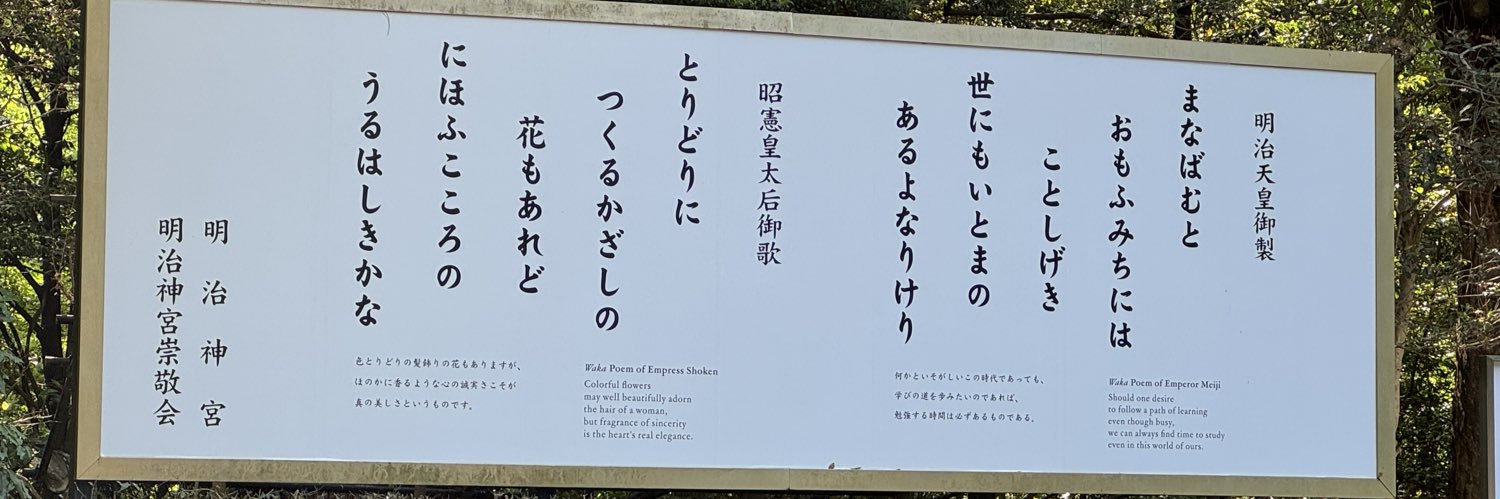 明治天皇御製
まなばむと
おもふみちには
ことしげき
世にもいとまの
あるよなりけり
Waka Poem of Emperor Meiji
Should one desire
to follow a path of learning
even though busy,
we can always find time to study
even in this world of ours.
何かといそがしいこの時代であっても、
学びの道を歩みたいのであれば、
勉強する時間は必ずあるものである。
昭憲皇太后御歌
とりどりに
つくるかざしの
花もあれど
にほふこころの
うるはしきかな
Waka Poem of Empress Shoken
Colorful flowers
may well beautifully adorn
the hair of a woman,
but fragrance of sincerity
is the heart's real elegance.
色とりどりの髪飾りの花もありますが、
ほのかに香るような心の誠実さこそが
真の美しさというものです。
明治神宮
明治神宮崇敬会